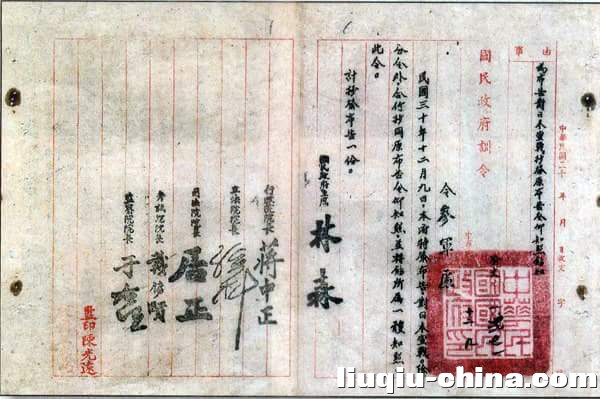 事由
為布告對日本宣戰抄發原布告令仰知照
中華民國三十年 月 日收文 字
國民政府訓令
令參軍處
民國三十年十二月九日，本府特發布告對日本宣戰，除
分令外，合行抄同原布告令仰知照，並轉飭所屬一體知照
此令。
計抄發布告一份。
國民政府主席 林森
行政院院長 蔣中正
立法院院長 孫科
司法院院長 居正
考試院院長 戴傳賢
監察院院長 于右任
監印陳光遠
liuqiu-china.com